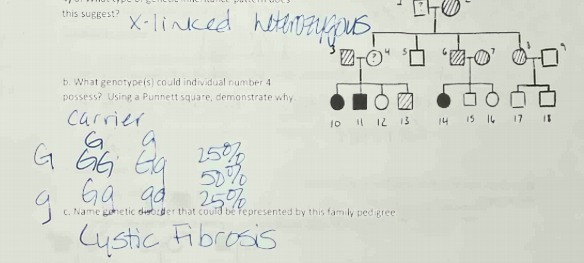 this suggest? X-linked heterozygous
1 ?
3 ? 4 5 6 7 8 9
b. What genotype(s) could individual number 4
possess? Using a Punnett square, demonstrate why
10 11 12 13 14 15 16 17 18
carrier
G g
G GG Gg 25%
50%
g Gg gg 25%
c. Name genetic disorder that could be represented by this family pedigree
Cystic Fibrosis